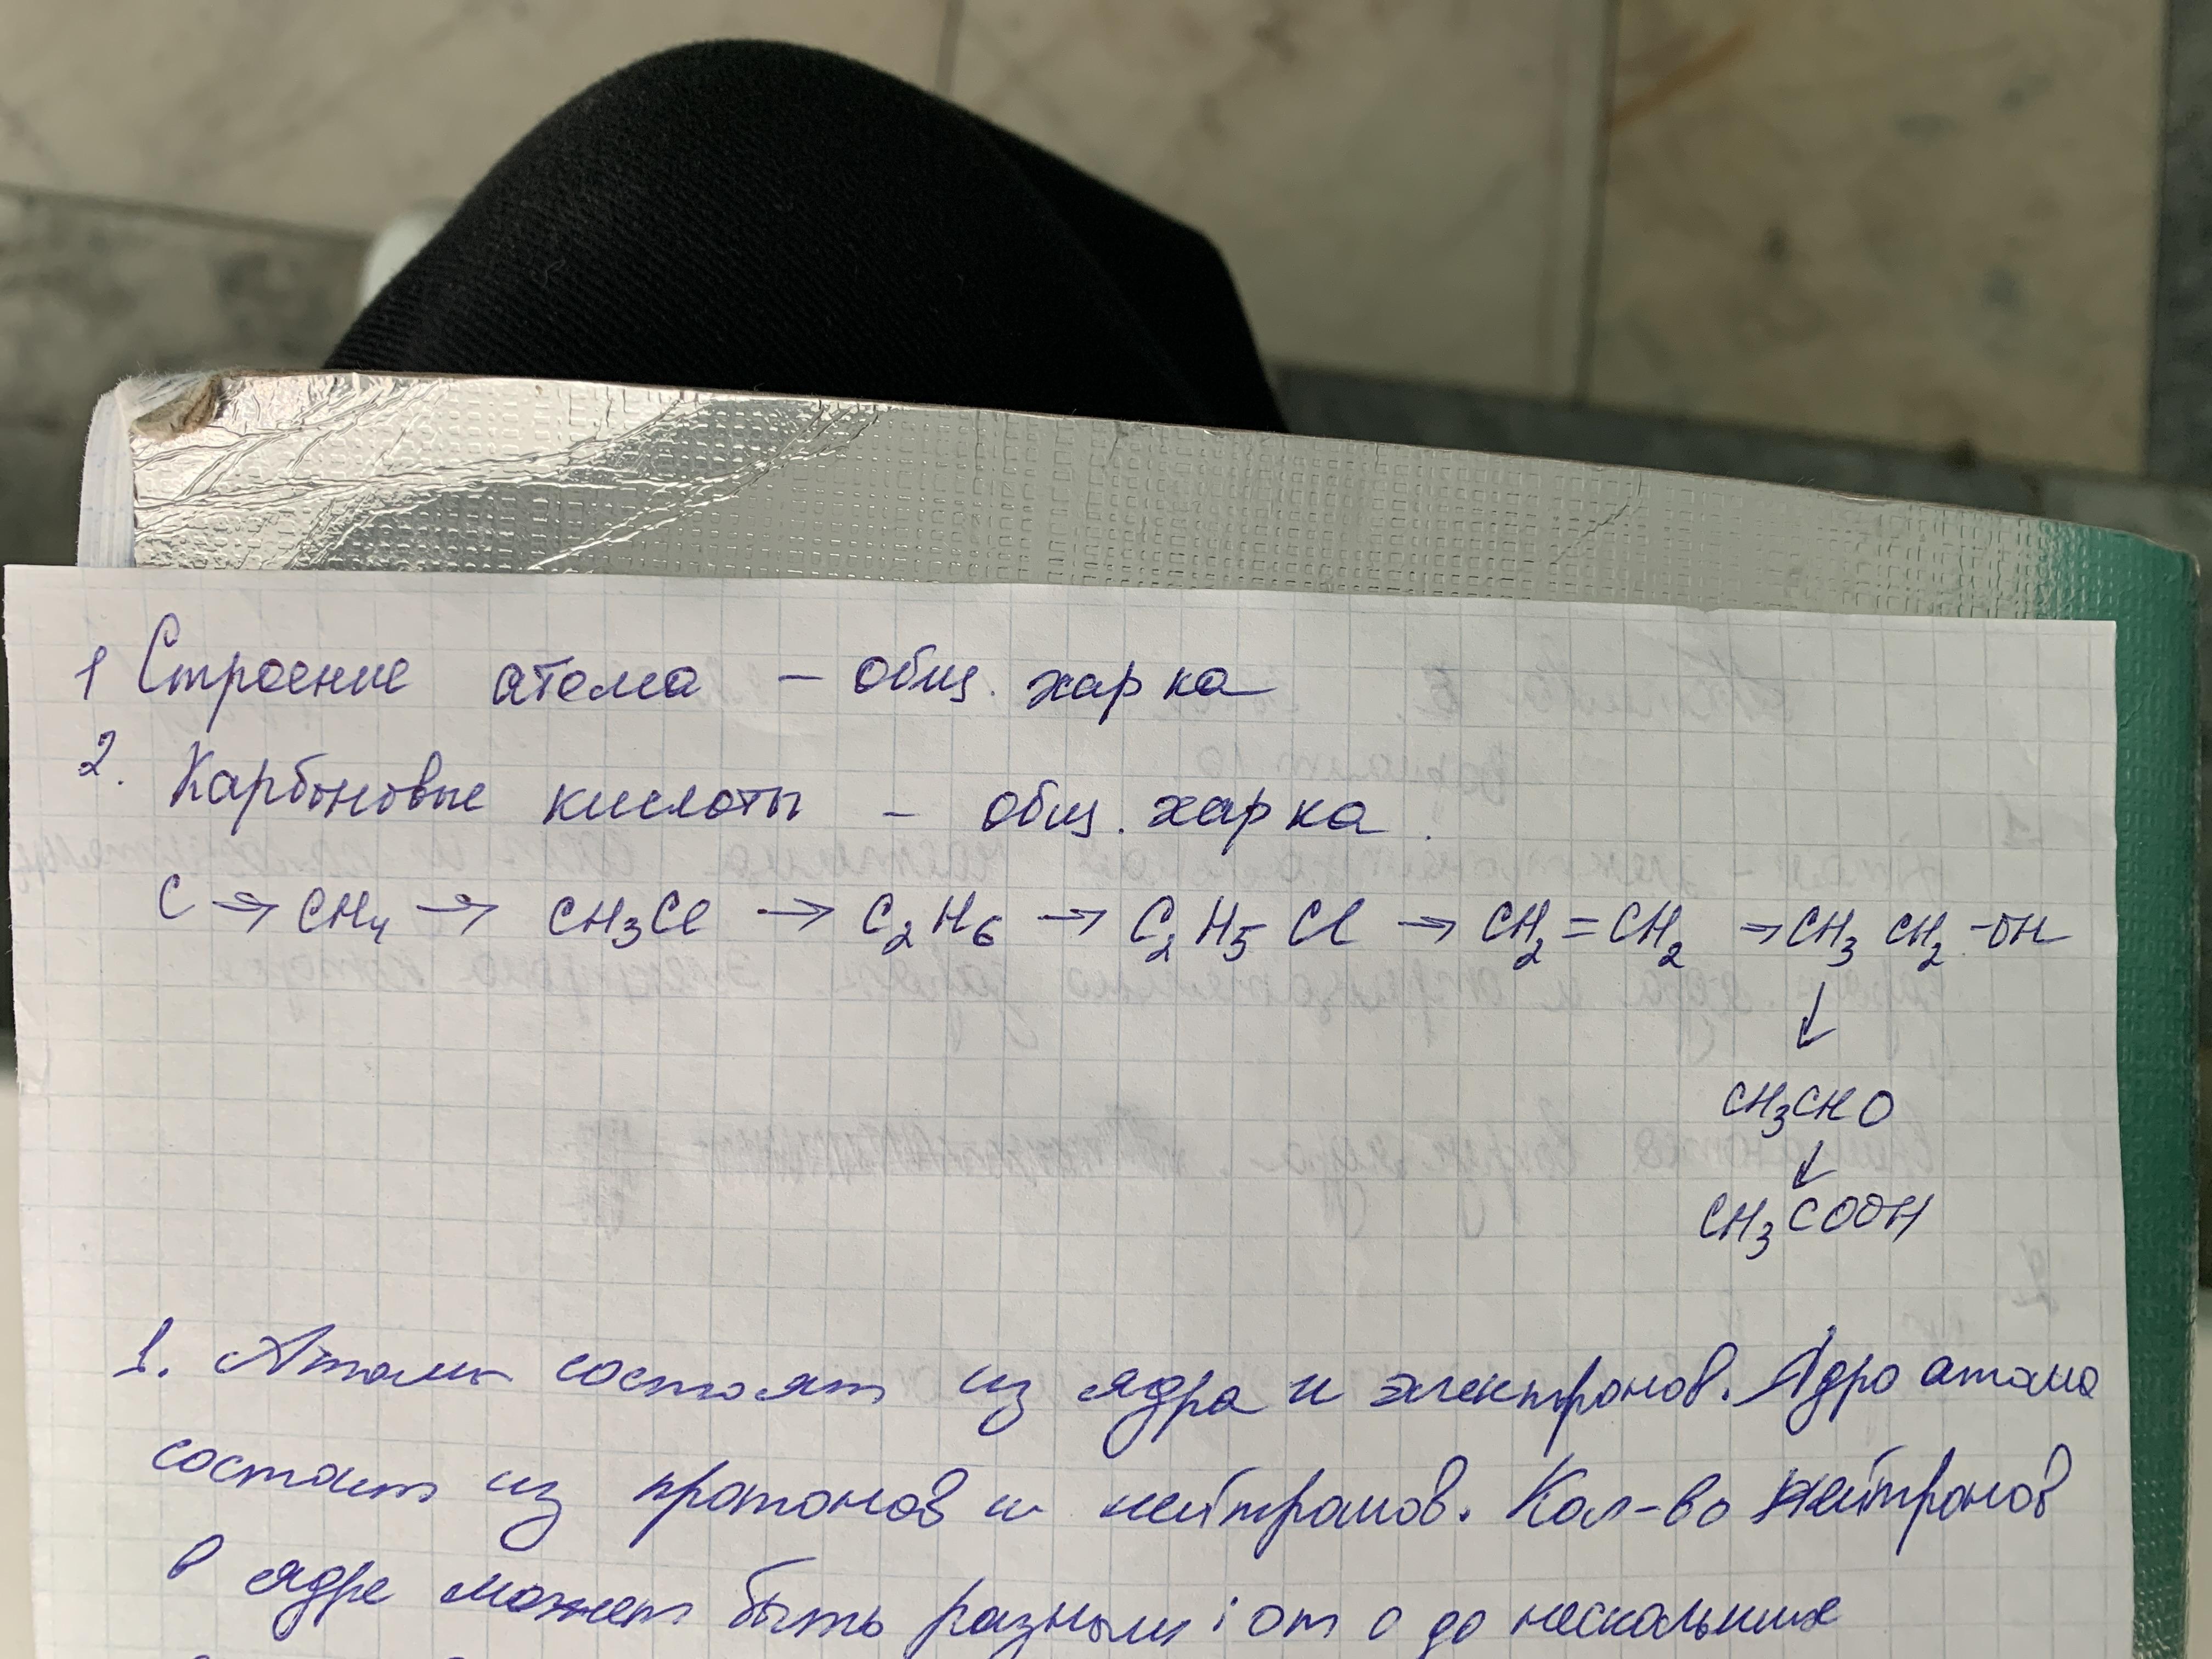 1 Строение атома – общ. харка
2. Карбоновые кислоты – общ. харка.
C → CH₄ → CH₃Cl → C₂H₆ → C₂H₅Cl → CH₂=CH₂ → CH₃CH₂-OH
↓
CH₃CHO
↓
CH₃COOH
1. Атомы состоят из ядра и электронов. Ядро атома
состоит из протонов и нейтронов. Кол-во нейтронов
в ядре может быть разным: от 0 до нескольких